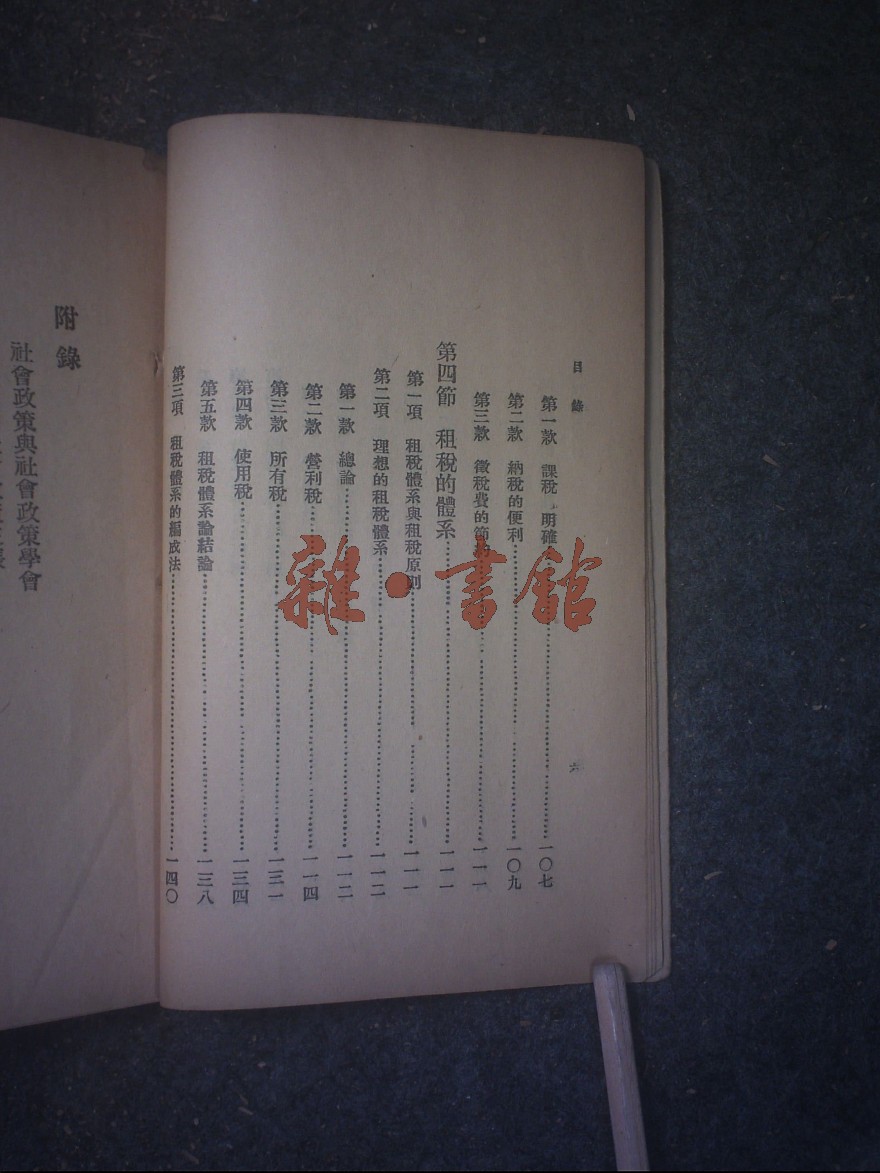 目錄
六
第一款 課稅 明確……一〇七
第二款 納稅的便利……一〇九
第三款 徵稅費的節……一一一
第四節 租稅的體系……一一一
第一項 租稅體系與租稅原則……一一一
第二項 理想的租稅體系……一一二
第一款 總論……一一二
第二款 營利稅……一一四
第三款 所有稅……一三一
第四款 使用稅……一三四
第五款 租稅體系論結論……一三八
第三項 租稅體系的編成法……一四〇
附錄
社會政策與社會政策學會
雜·書館